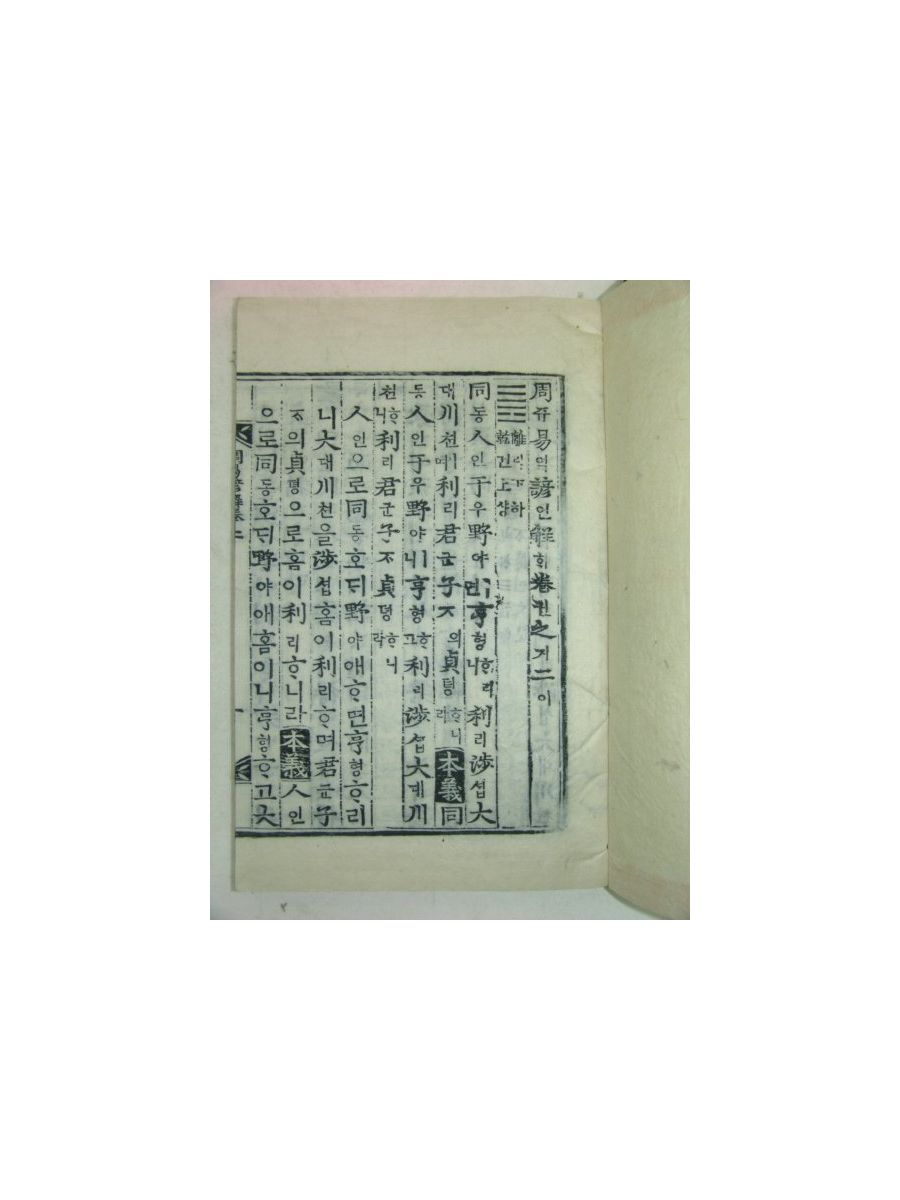 周쥬易역諺언解ᄒᆡ卷권之지二이
䷌ 離리下하 乾건上샹
同동人인于우野야ㅣ면亨형ᄒᆞ리니利리涉섭大
대川쳔이며利리君군子ᄌᆞ의貞뎡ᄒᆞ니라本義同
동人인于우野야ㅣ니亨형ᄒᆞ고利리涉섭大대川
쳔ᄒᆞ니利리君군子ᄌᆞ貞뎡ᄒᆞ니라
人인으로同동호ᄃᆡ野야애ᄒᆞ면亨형ᄒᆞ리
니大대川쳔을涉섭홈이利리ᄒᆞ며君군子
ᄌᆞ의貞뎡으로홈이利리ᄒᆞ니라本義人인
으로同동호ᄃᆡ野야애홈이니亨형ᄒᆞ고大
周易諺解卷二 一